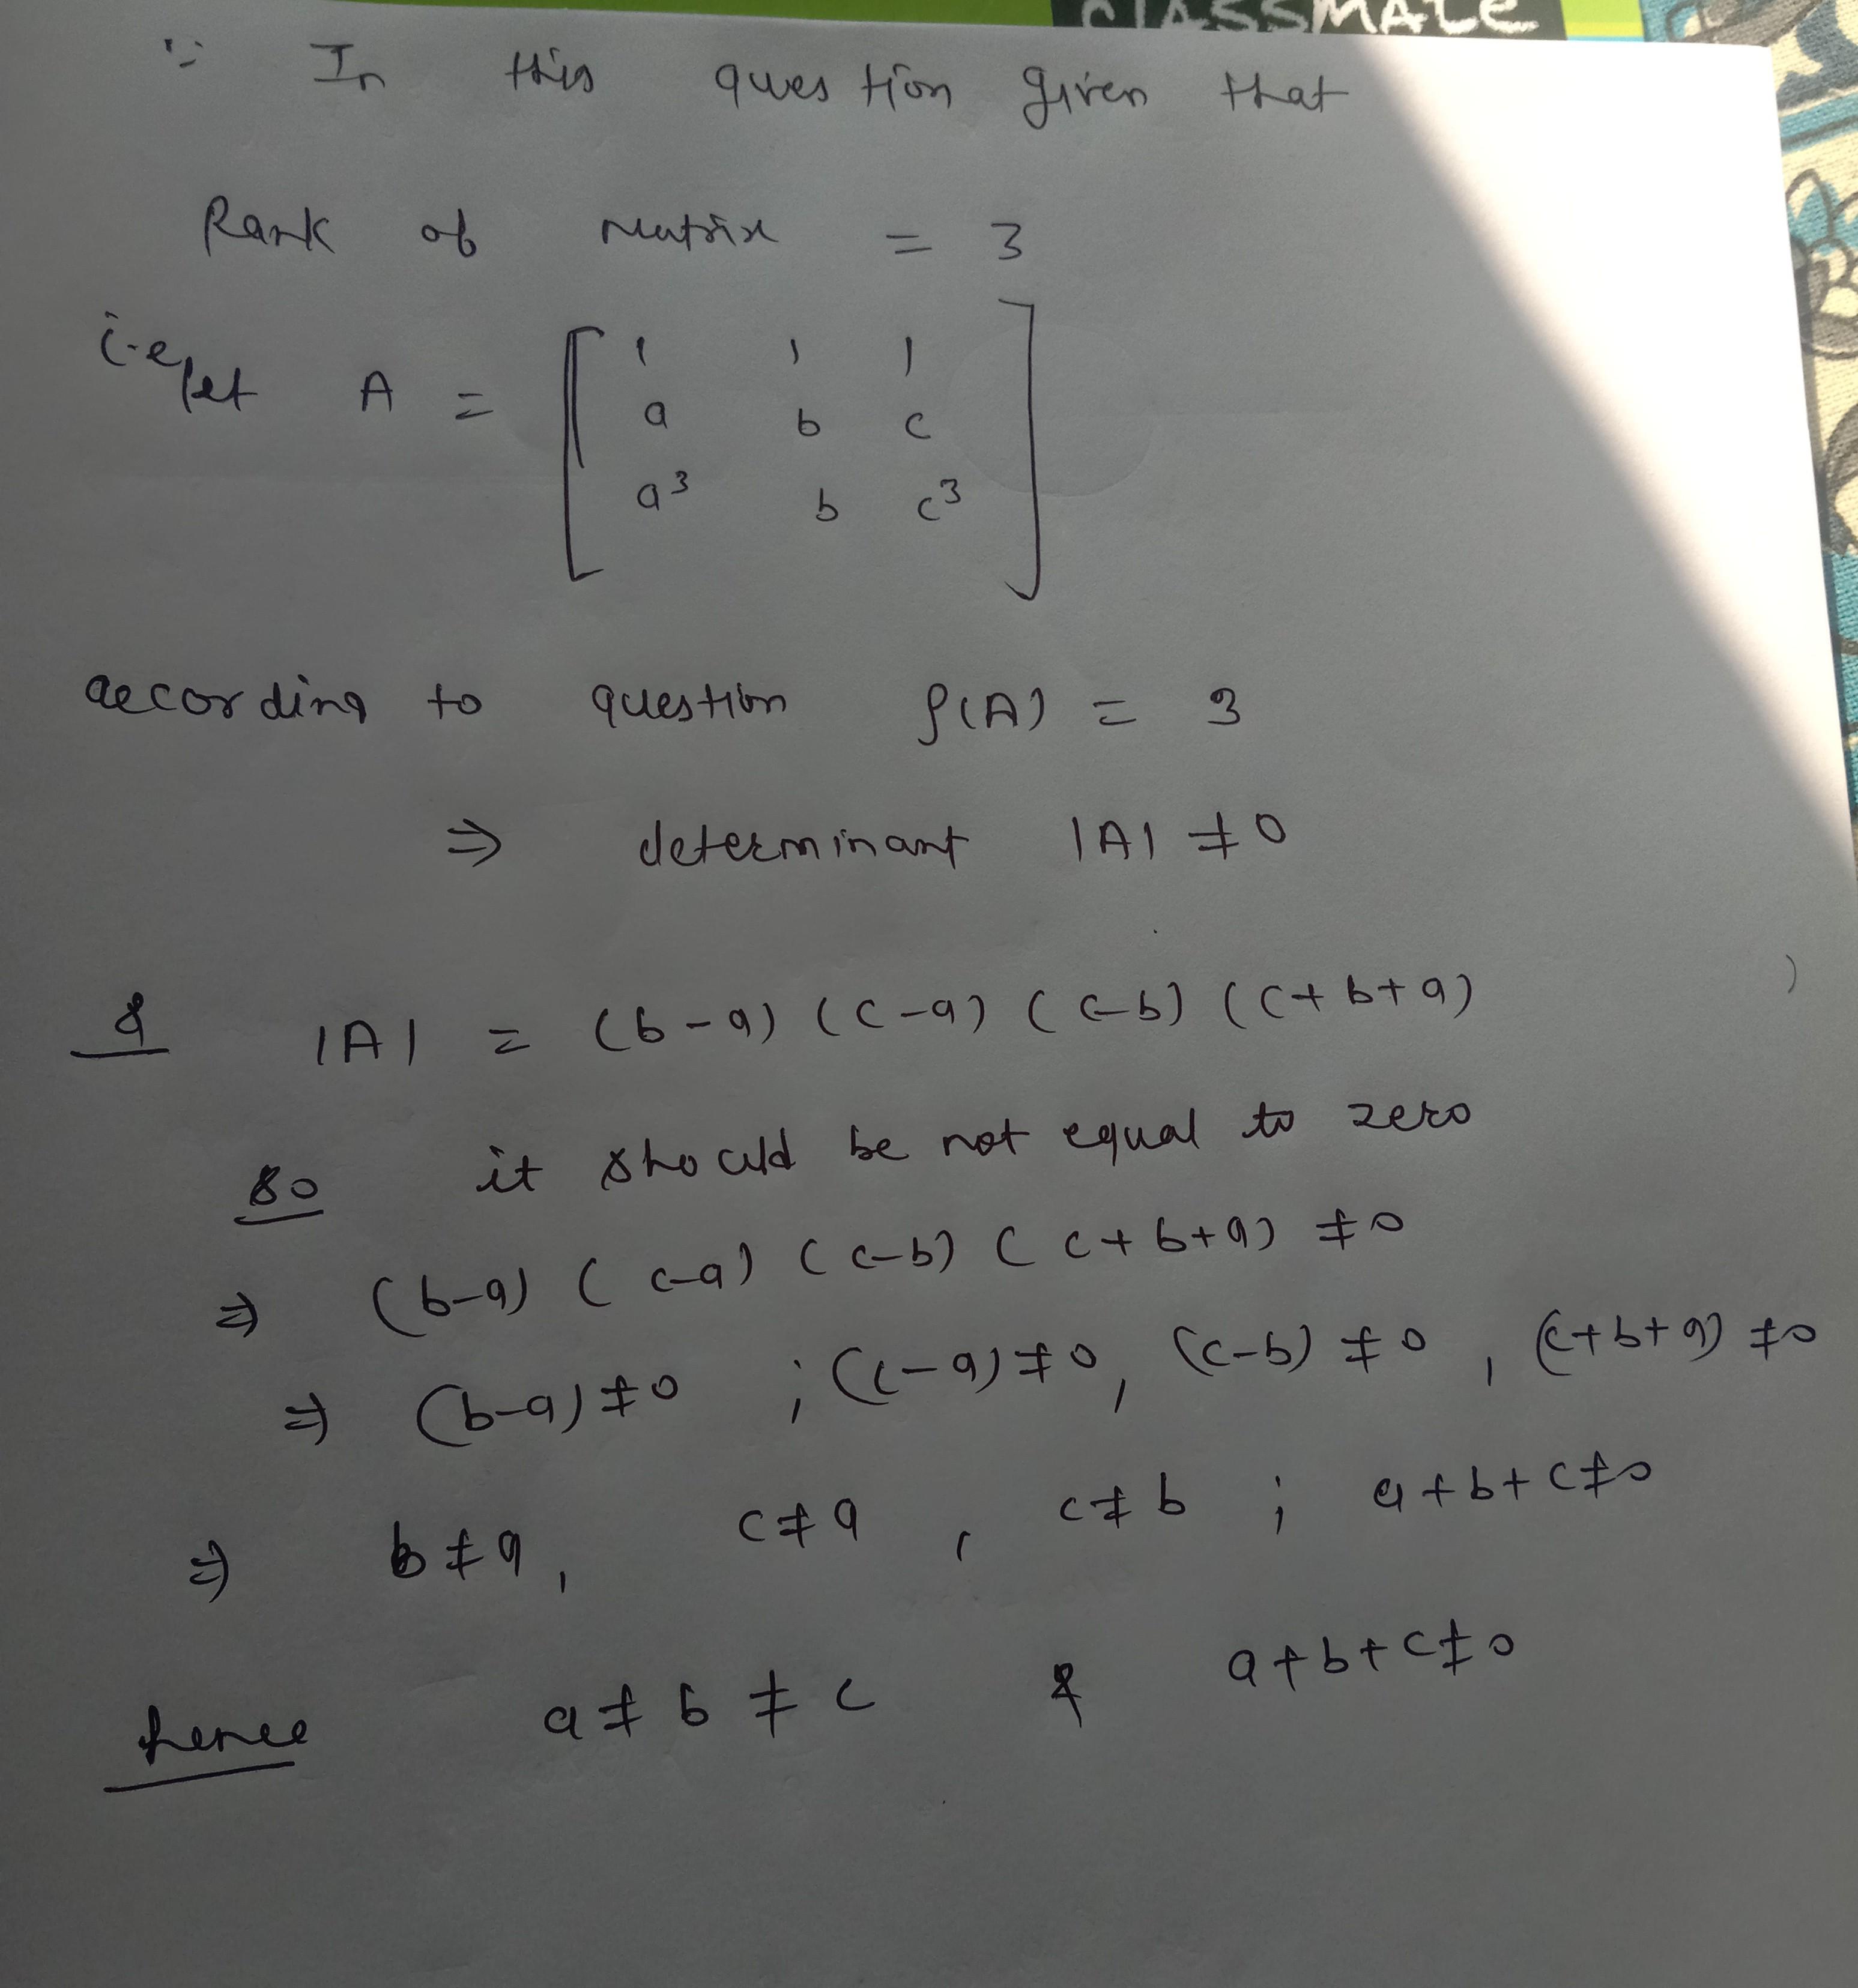 CLASSMATE
∵ In this question given that
Rank of matrix = 3
i.e let A = [ 1 1 1
a b c
a³ b c³ ]
according to question ρ(A) = 3
⇒ determinant |A| ≠ 0
& |A| = (b-a) (c-a) (c-b) (c+b+a) )
so it should be not equal to zero
⇒ (b-a) (c-a) (c-b) (c+b+a) ≠ 0
⇒ (b-a) ≠ 0 ; (c-a) ≠ 0, (c-b) ≠ 0 , (c+b+a) ≠ 0
⇒ b ≠ a, c ≠ a , c ≠ b ; a+b+c ≠ 0
hence a ≠ b ≠ c & a+b+c ≠ 0